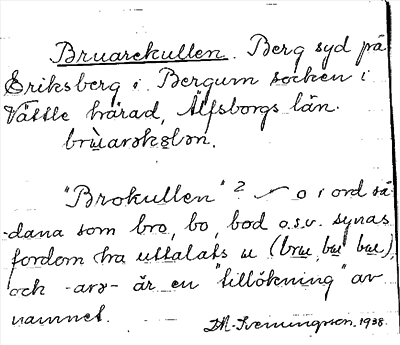 Bruarekullen. Berg syd på
Eriksberg i Bergum socken i
Vättle härad, Älfsborgs län.
brùarəkɞlən.
"Brokullen"? – o i ord så-
dana som bro, bo, bod o.s.v. synas
fordom ha uttalats u (bru, bu bu),
och -arə- är en "tillökning" av
namnet.
1938.